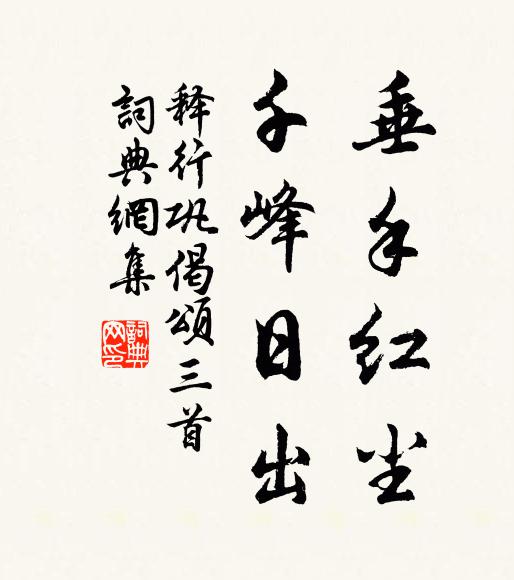 垂手红尘
千峰日出
释行巩偈颂三首
詞典網集
詞典網印